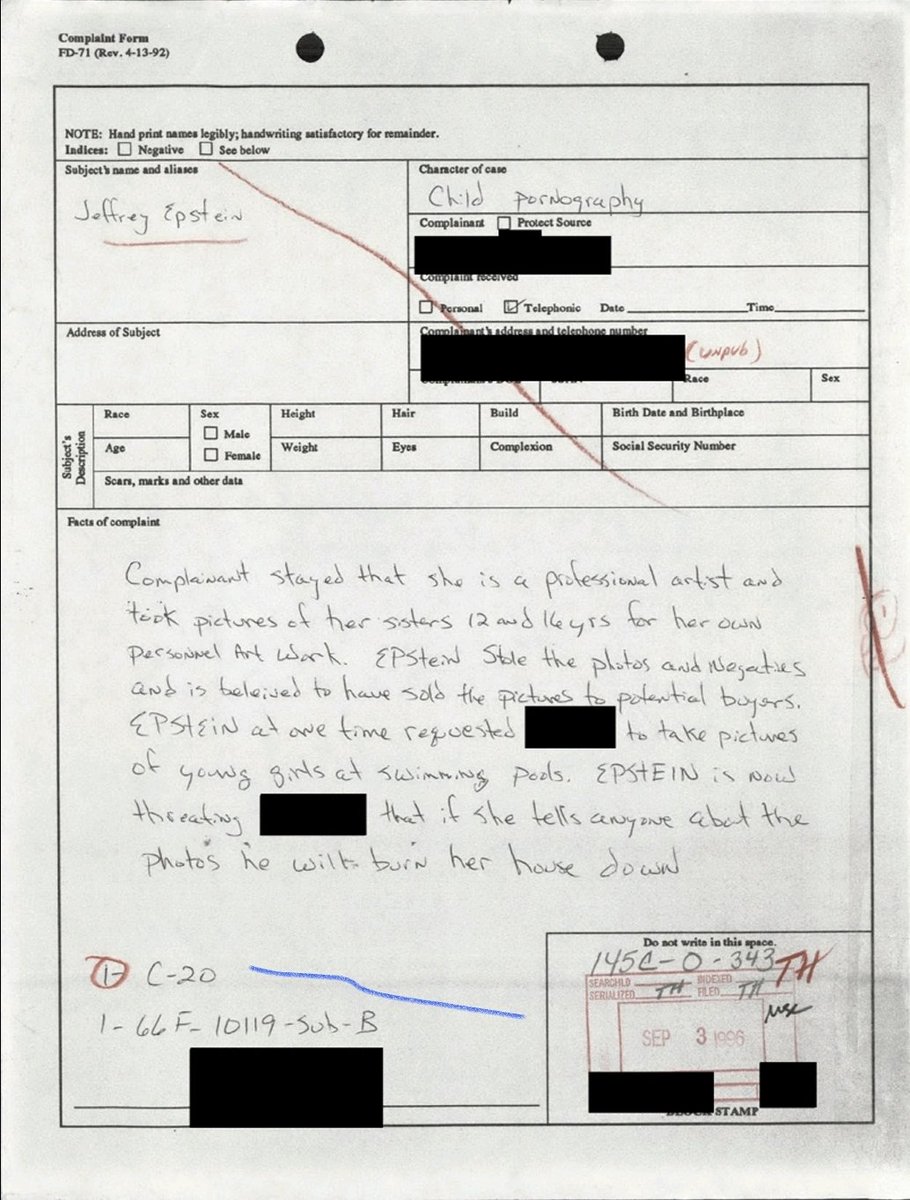 Complaint Form
FD-71 (Rev. 4-13-92)
NOTE: Hand print names legibly; handwriting satisfactory for remainder.
Indices: Negative See below
Subject's name and aliases
Jeffrey Epstein
Character of case
Child pornography
Complainant Protect Source
Complaint received
Personal Telephonic Date Time
Address of Subject
Complainant's address and telephone number
(unpub)
Race Sex
Subject's Description
Race
Sex
Male
Female
Height
Hair
Build
Birth Date and Birthplace
Age
Weight
Eyes
Complexion
Social Security Number
Scars, marks and other data
Facts of complaint
Complainant stayed that she is a professional artist and
took pictures of her sisters 12 and 16 yrs for her own
personnel Art Work. EPStein Stole the photos and Negatives
and is beleived to have sold the pictures to potential buyers.
EPSTEIN at one time requested to take pictures
of young girls at swimming pools. EPSTEIN is now
threating that if she tells anyone abot the
photos he will burn her house down
1- C-20
1- 66F-10119-Sub-B
Do not write in this space.
145C-0-343
TH
SEARCHED INDEXED
SERIALIZED TH FILED TH
SEP 3 1996
BLOCK STAMP